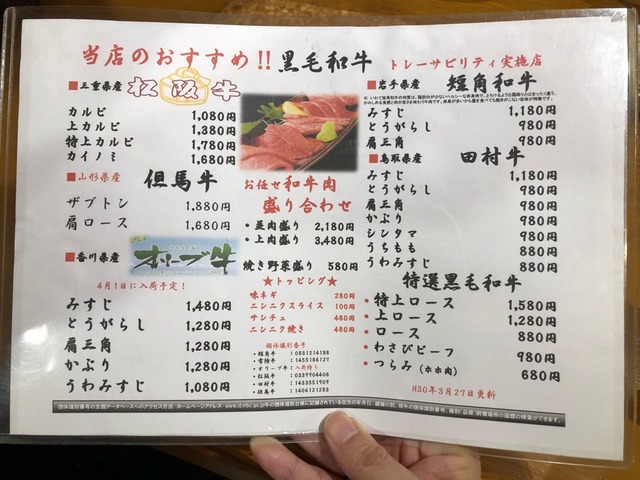 当店のおすすめ!! 黒毛和牛 トレーサビリティ実施店
■三重県産 松阪牛
カルビ 1,080円
上カルビ 1,380円
特上カルビ 1,780円
カイノミ 1,680円
■山形県産 但馬牛
ザブトン 1,880円
肩ロース 1,680円
■香川県産 オリーブ牛
4月1日に入荷予定!
みすじ 1,480円
とうがらし 1,280円
肩三角 1,280円
かぶり 1,280円
うわみすじ 1,080円
お任せ和牛肉
盛り合わせ
・並肉盛り 2,180円
・上肉盛り 3,480円
焼き野菜盛り 580円
★トッピング★
味ネギ 280円
ニンニクスライス 100円
サンチュ 480円
ニンニク焼き 480円
個体識別番号
・短角牛
・常陸牛
・オリーブ牛:入荷待ち
・松阪牛
・田村牛
・但馬牛
■岩手県産 短角和牛
みすじ 1,180円
とうがらし 980円
肩三角 980円
■鳥取県産 田村牛
みすじ 1,180円
とうがらし 980円
肩三角 980円
かぶり 980円
シンタマ 980円
うちもも 880円
うわみすじ 880円
特選黒毛和牛
・特上ロース 1,580円
・上ロース 1,280円
・ロース 880円
・わさびビーフ 980円
・つらみ(ホホ肉) 680円
H30年3月27日更新